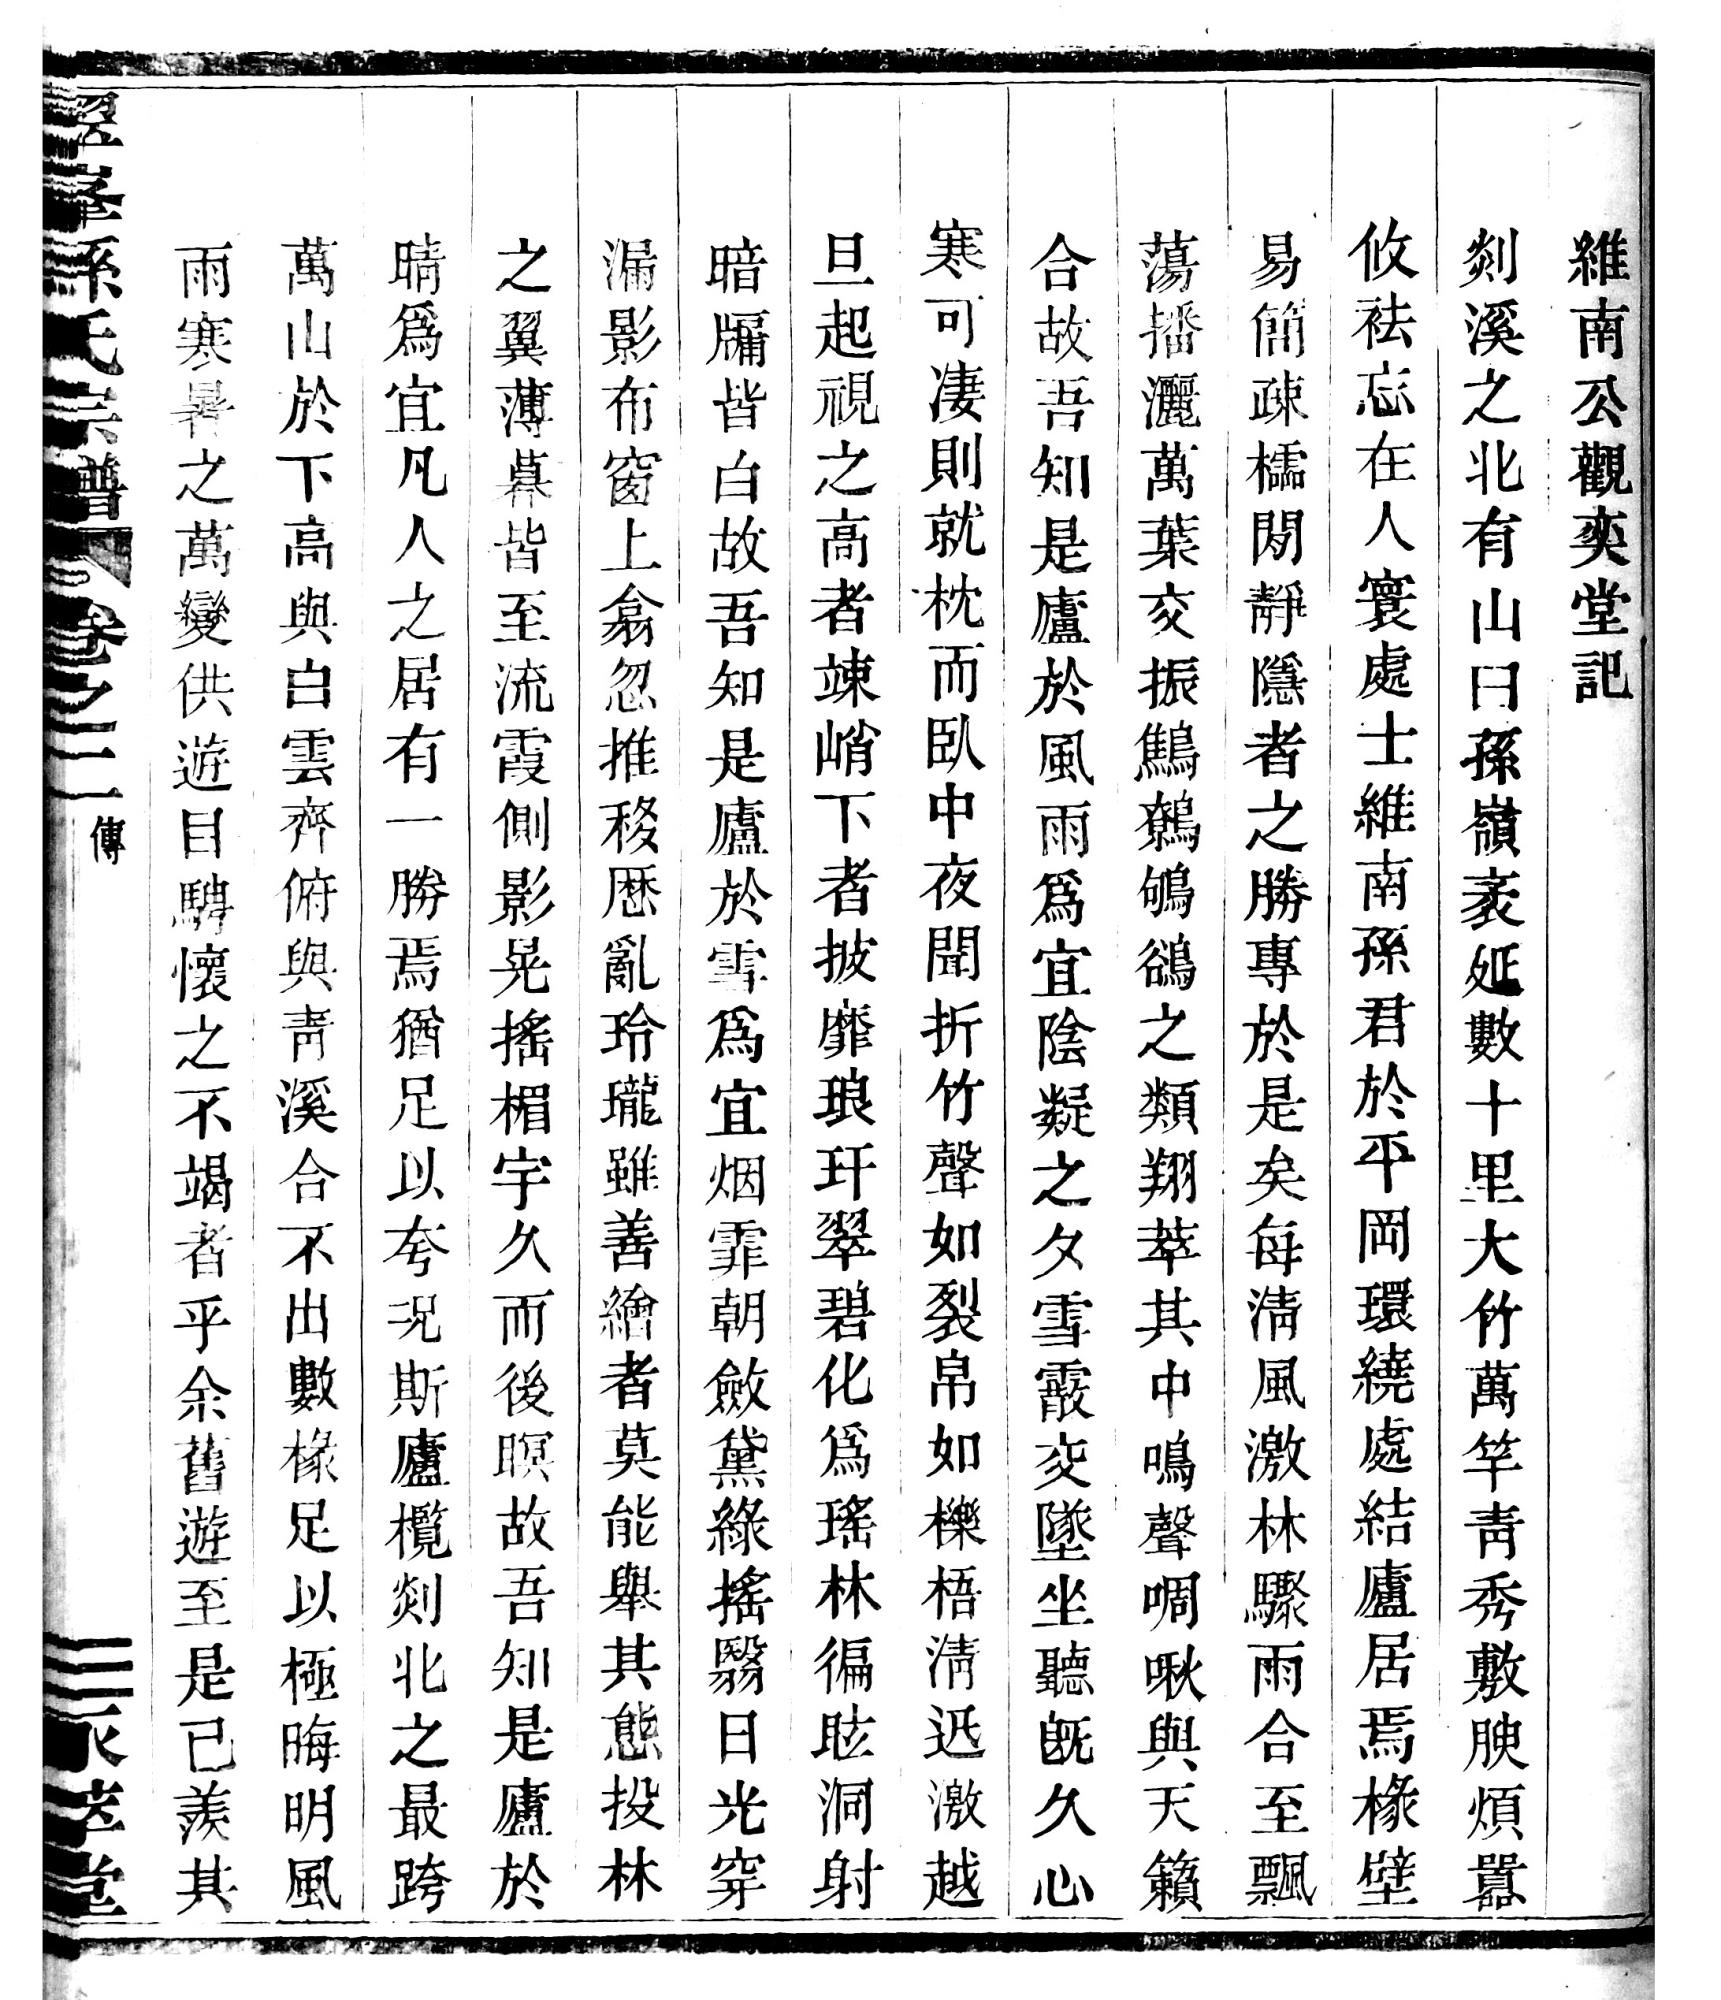 維南公觀奕堂記
剡溪之北有山曰孫嶺袤延數十里大竹萬竿青秀敷腴煩囂
攸祛忘在人寰處士維南孫君於平岡環繞處結廬居焉椽壁
易簡疎櫺閒靜隱者之勝專於是矣每淸風激林驟雨合至飄
蕩播灑萬葉交振鷦鶉鴝鵒之類翔萃其中鳴聲啁啾與天籟
合故吾知是廬於風雨爲宜陰凝之夕雪霰交墜坐聽旣久心
寒可凄則就枕而臥中夜聞折竹聲如裂帛如櫟梧淸迅激越
旦起視之高者竦峭下者披靡琅玕翠碧化爲瑤林徧眩洞射
暗牖皆白故吾知是廬於雪爲宜烟霏朝斂黛綠搖翳日光穿
漏影布窗上翕忽推移歷亂玲瓏雖善繪者莫能舉其態投林
之翼薄暮皆至流霞側影晃搖楣宇久而後暝故吾知是廬於
晴爲宜凡人之居有一勝焉猶足以夸况斯廬欖剡北之最跨
萬山於下高與白雲齊俯與靑溪合不出數椽足以極晦明風
雨寒暑之萬變供遊目騁懷之不竭者乎余舊遊至是已羨其
孫氏宗譜 卷之二 傳 萃堂